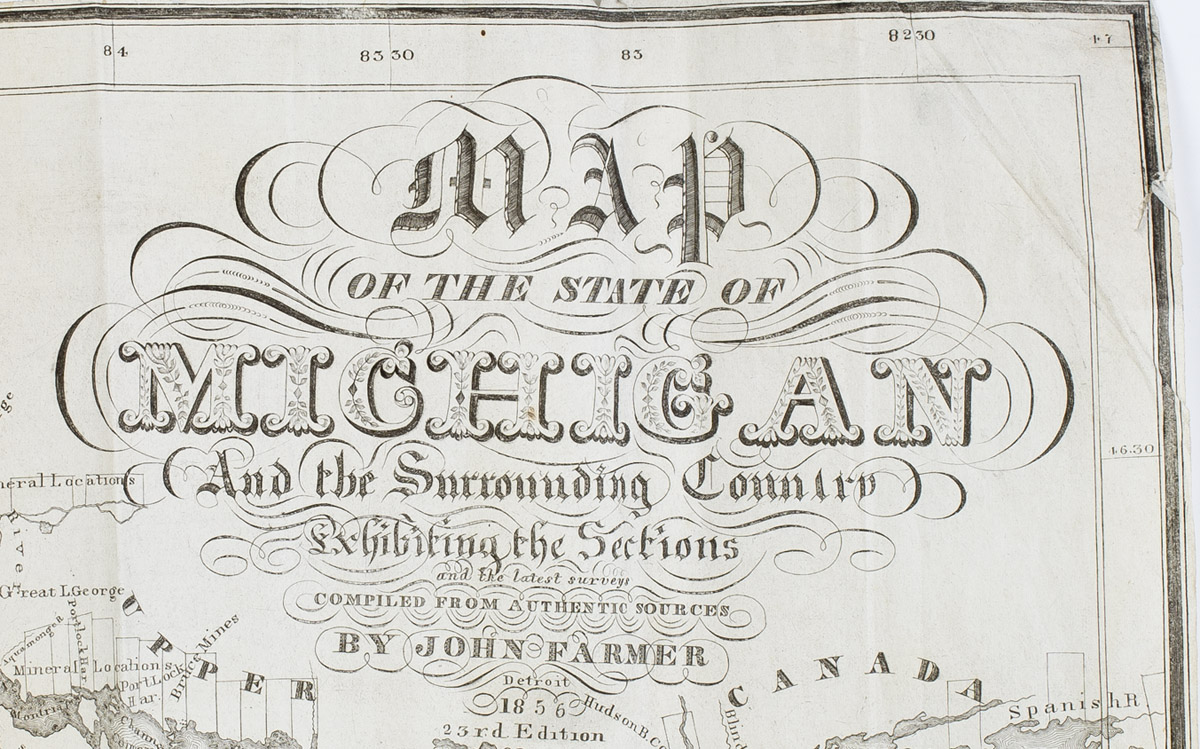 84
83 30
83
82 30
47
MAP
OF THE STATE OF
MICHIGAN
46.30
And the Surrounding Country
Exhibiting the Sections
and the latest surveys
COMPILED FROM AUTHENTIC SOURCES
BY JOHN FARMER
Detroit
1856
23rd Edition
Great L George
UPPER
CANADA
Mineral Locations
Portlock Har.
Bruce Mines
Spanish R
Hudson B Co
Montrial